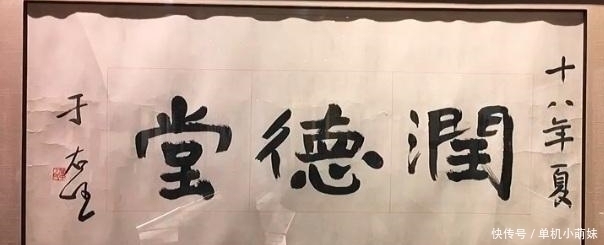 十八年夏
潤德堂
于右任
快传号/单机小萌妹